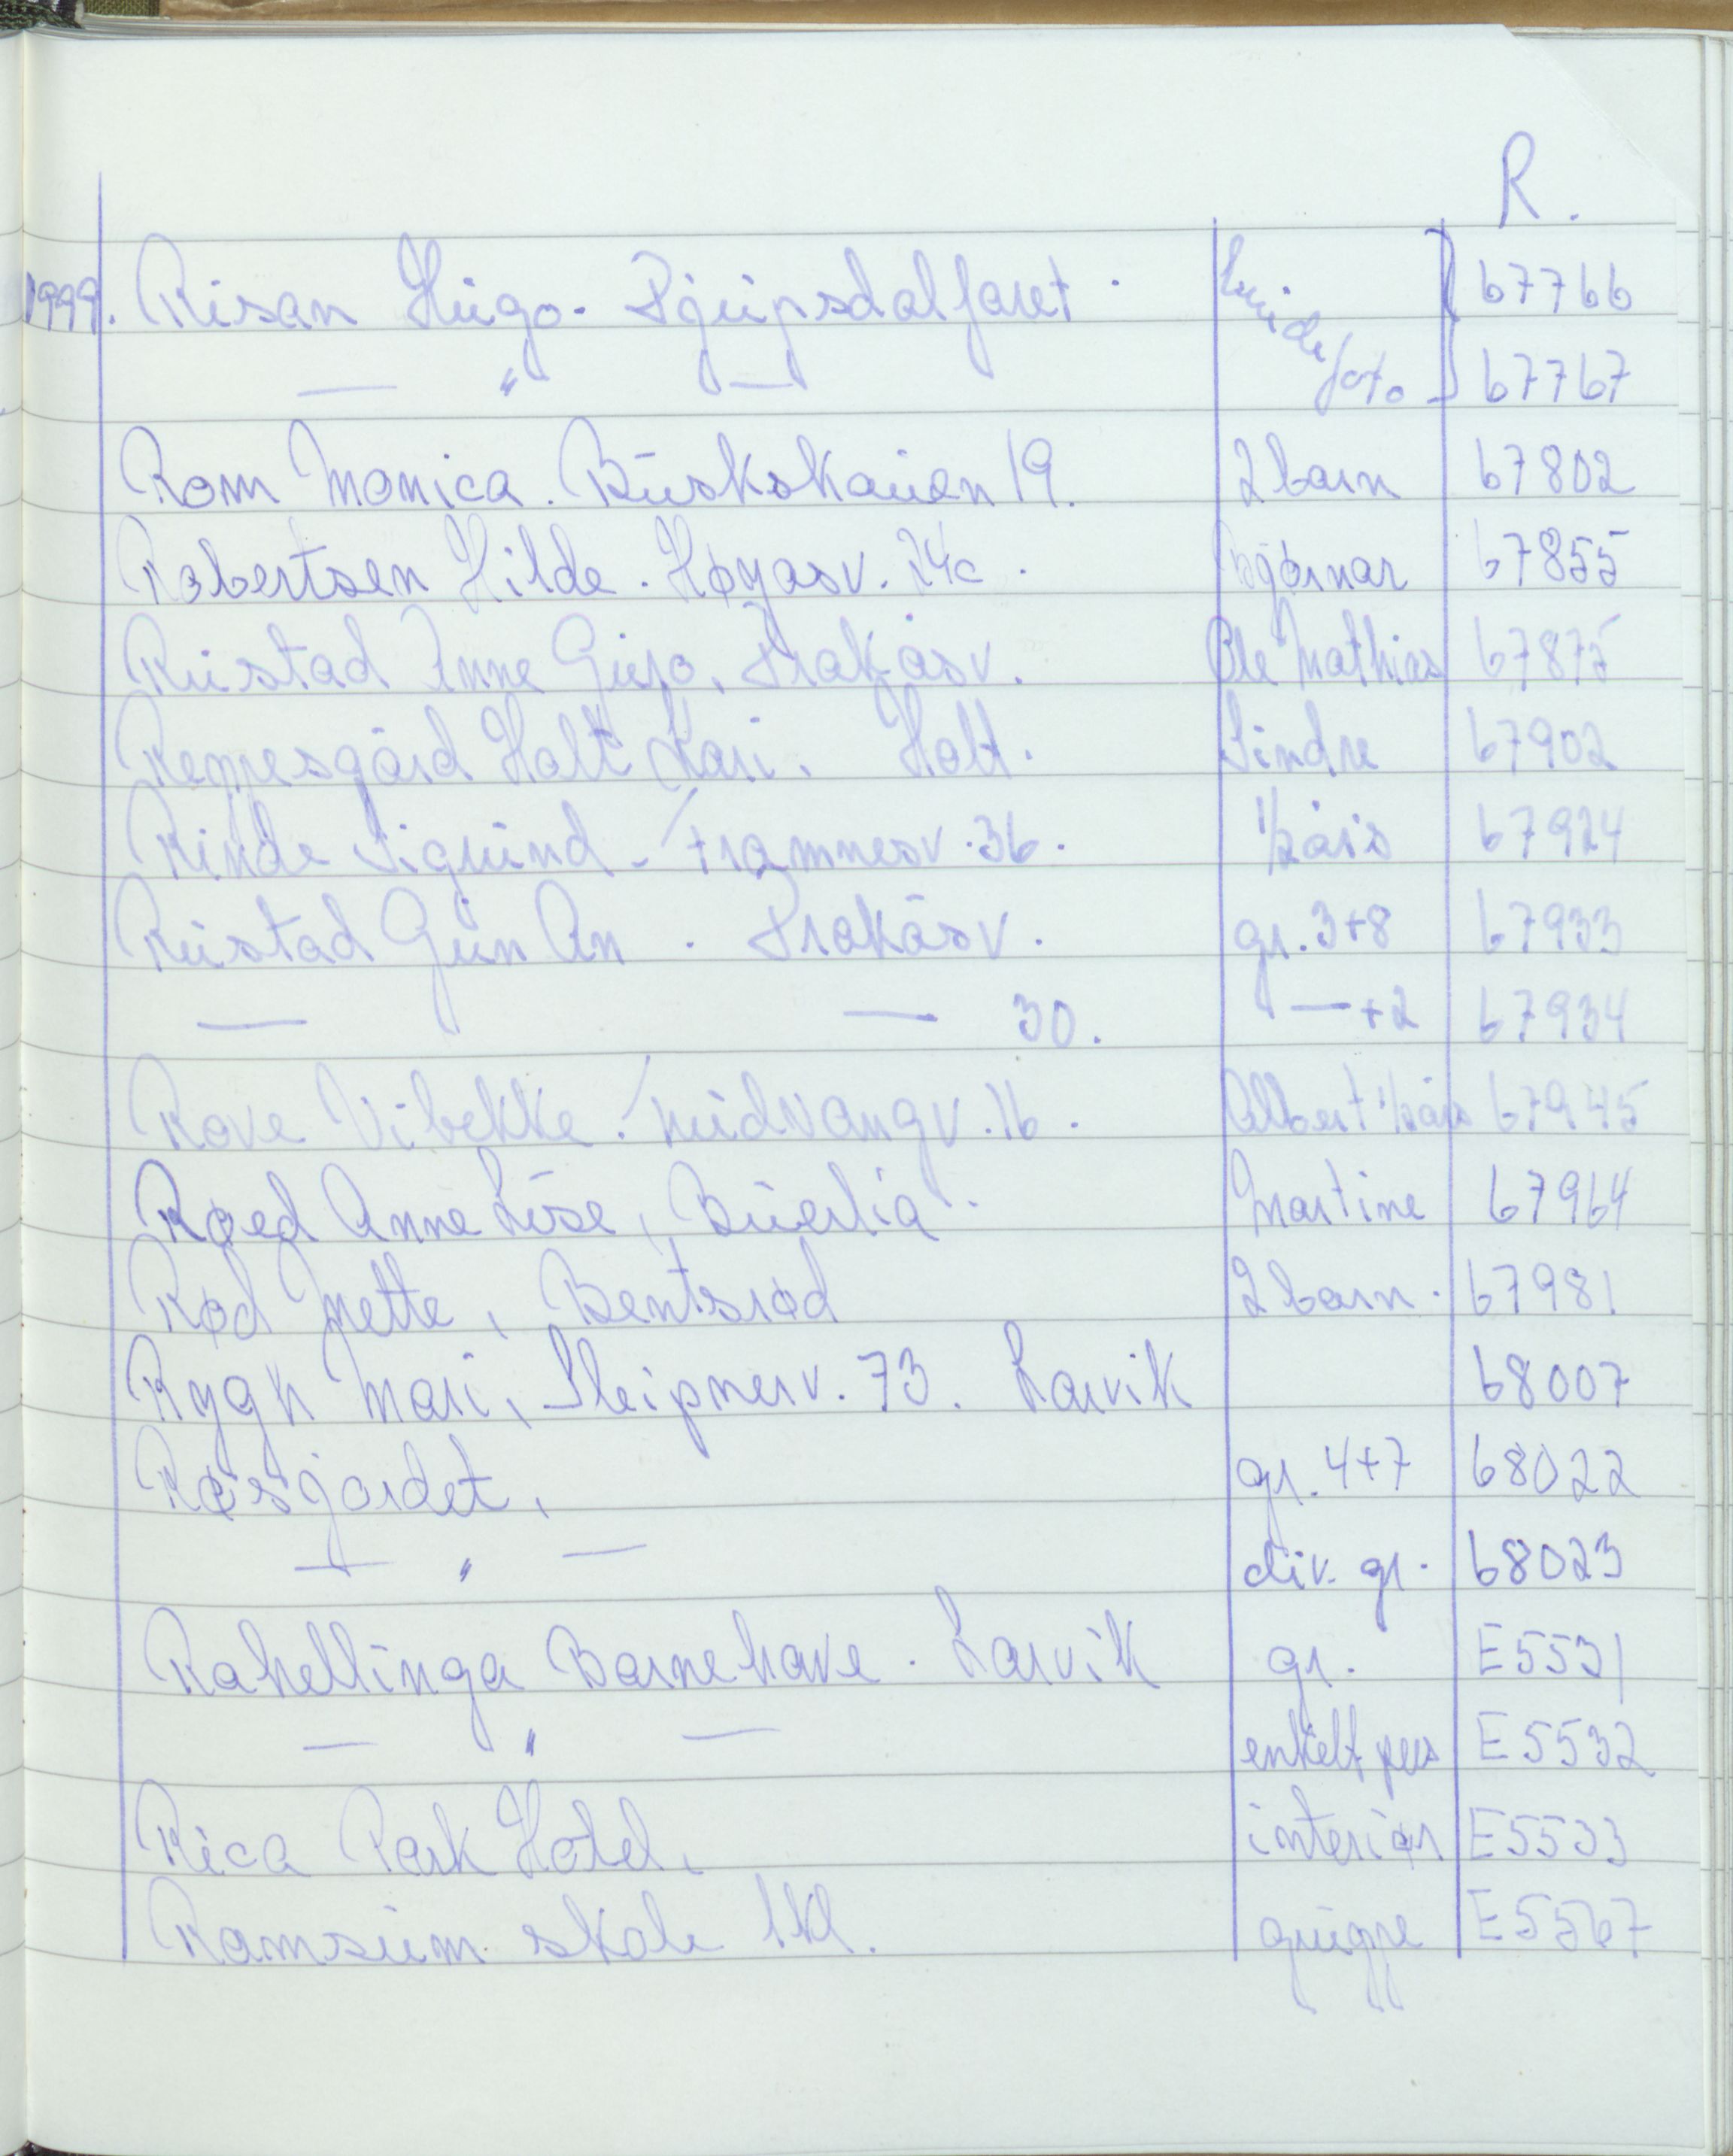 R.
1999. Risan Hugo. Djupsdalfaret. 67766
— " — foto 67767
Rom Monica. Buskskauen 19. 2 barn 67802
Robertsen Hilde. Høyasv. 24c. Bjørnar 67855
Rustad Anne Guro, Prakåsv. Ole Mathias 67875
Rennesgård Holt Kari. Holt. Sindre 67902
Rinde Sigrund - Framnesv. 36. 1/2 års 67924
Rustad Gun An. Prakåsv. gr. 3+8 67933
— — 30. — +2 67934
Rove Vibekke. Midvangv. 16. Albert 1/2 års 67945
Røed Anne Lise, Buerlia. Martine 67964
Rød Mette, Bentsrød 2 barn. 67981
Rygh Mari, Sleipnerv. 73. Larvik 68007
Røsgjordet, gr. 4+7 68022
— " — div. gr. 68023
Rakellinga Barnehave. Larvik gr. E5531
— " — enkelt pers E5532
Rica Park Hotel. interiør E5533
Ramsum skole 1 kl. gruppe E5567